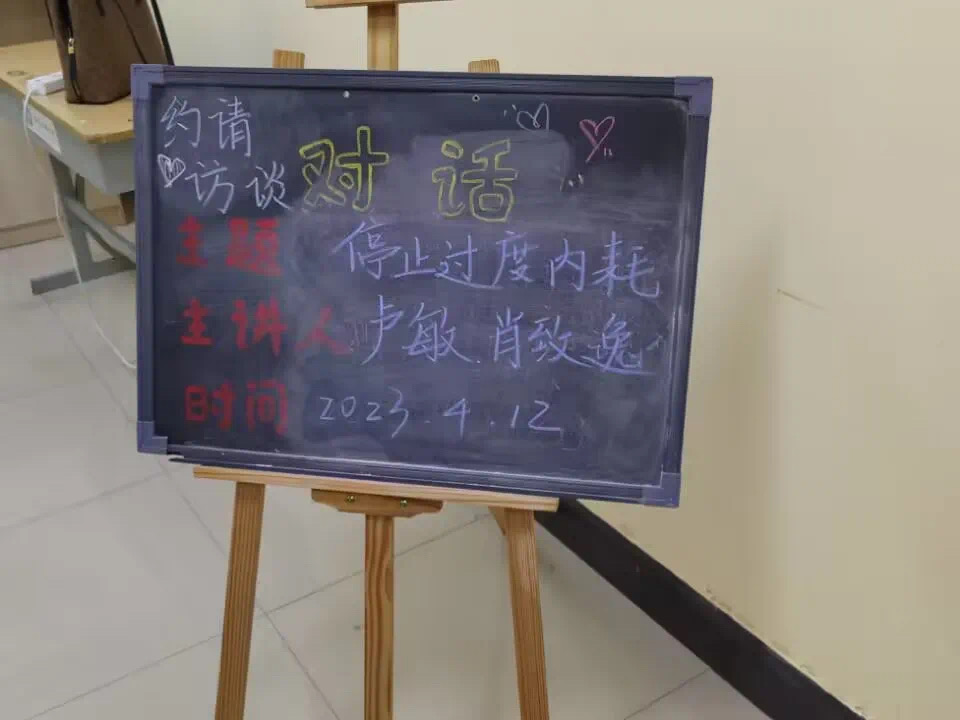 约请
访谈 对话
主题 停止过度内耗
主讲人 卢敏 肖致逸
时间 2023.4.12